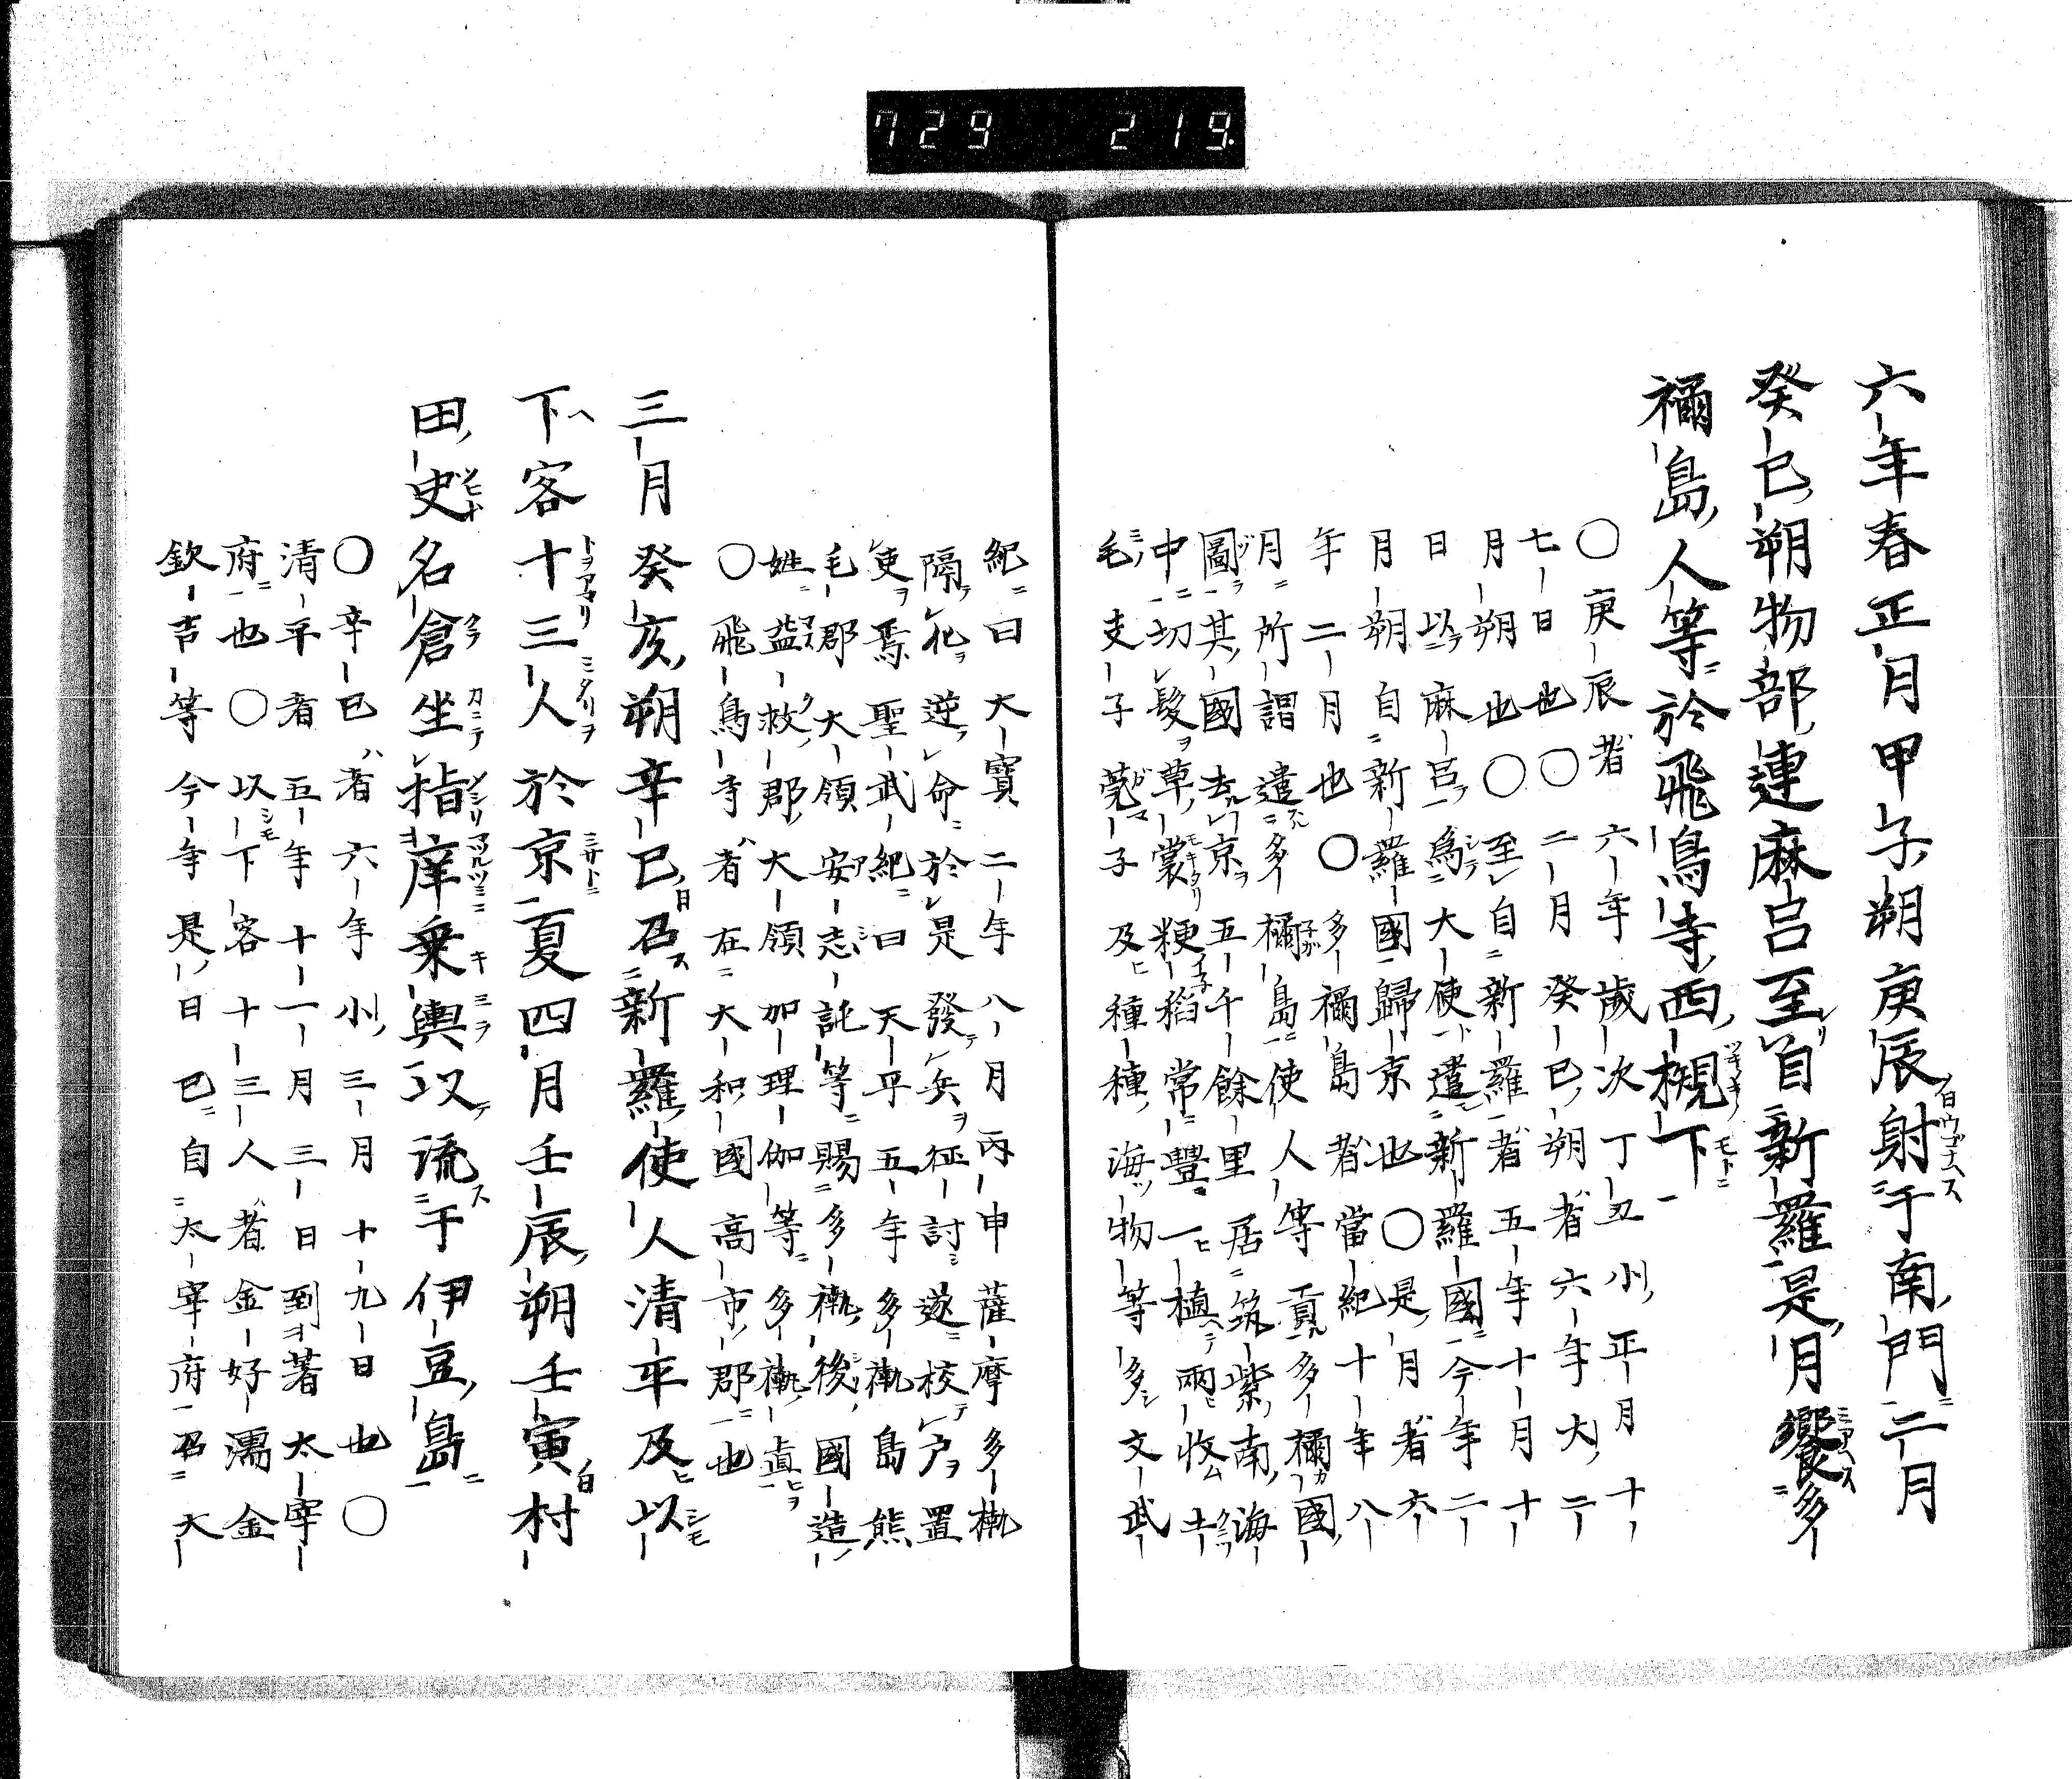 729 219.
六年春正月甲子朔庚辰射于南門二月
癸巳朔物部連麻呂至自新羅是月饗多
禰島人等於飛鳥寺西槻下
〇庚辰者六年歳次丁丑小正月十
七日也〇二月癸巳朔者六年大二
月朔也〇至自新羅者五年十月十
日以麻呂為大使遣新羅國今年二
月朔自新羅國歸京也〇是月者六
年二月也〇多禰島者當紀十年八
月所謂遣多禰島使人等貢多禰國
圖其國去京五千餘里居筑紫南海
中切髮草裳粳稻常豐一植兩收土
毛支子莞子及種種海物等多文武
紀曰大寶二年八月丙申薩摩多褹
隔化逆命於是發兵征討遂校戸置
吏焉聖武紀曰天平五年多褹島熊
毛郡大領安志託等賜多褹後國造
姓益救郡大領加理伽等多褹直
〇飛鳥寺者在大和國高市郡也
三月癸亥朔辛巳召新羅使人清平及以
下客十三人於京夏四月壬辰朔壬寅村
田史名倉坐指庠乗輿以流于伊豆島
〇辛巳者六年小三月十九日也〇
清平者五年十一月三日到著太宰
府也〇以下客十三人者金好濡金
欽吉等今年是日已自太宰府召大